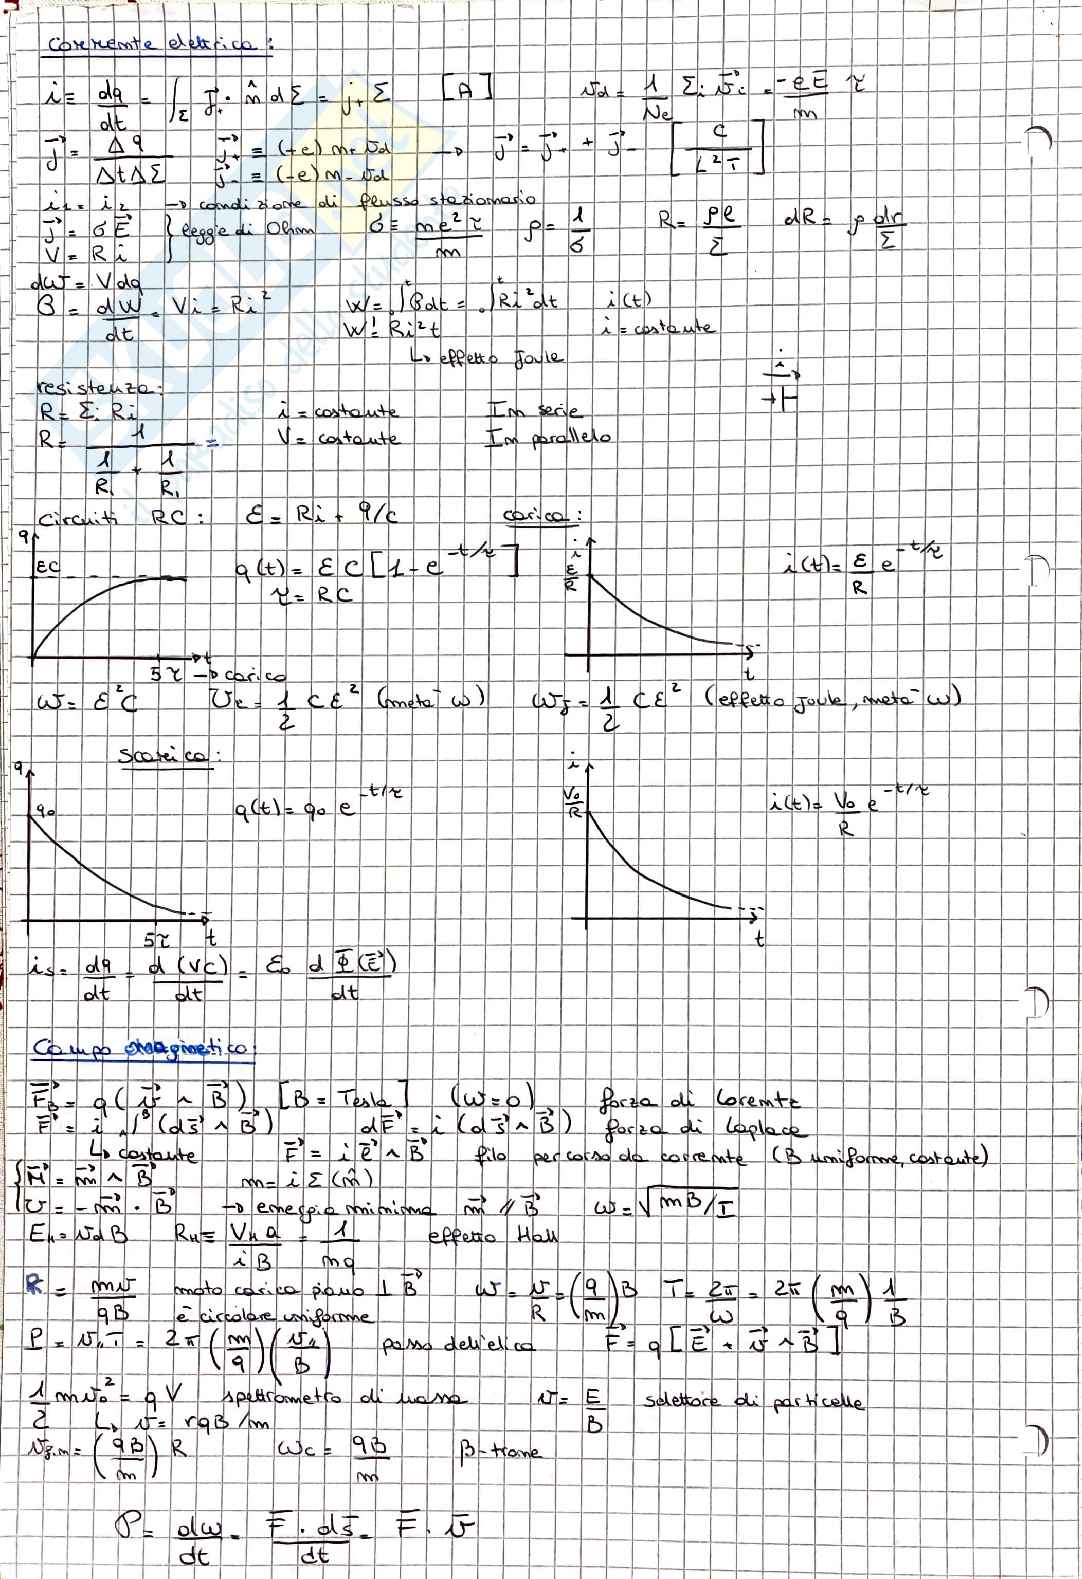 corrente elettrica:
i = dq/dt = ∫_Σ j⃗₊ · n̂ dΣ = j₊ Σ [A] v_d = 1/Ne Σᵢ v⃗ᵢ = -eE̅/m τ
j⃗ = Δq/ΔtΔΣ j⃗₊ ≡ (+e) n₊ v_d → j⃗ = j⃗₊ + j⃗₋ [C/L²T]
j⃗₋ ≡ (-e) n₋ v_d
i₁ = i₂ → condizione di flusso stazionario
j⃗ = σE⃗ } legge di Ohm σ ≡ ne²τ/m ρ = 1/σ R = ρl/Σ dR = ρ dr/Σ
V = Ri
dW = Vdq
P = dW/dt = Vi = Ri² W = ₀∫ᵗ Pdt = ₀∫ᵗ Ri²dt i(t)
W = Ri²t i = costante
↳ effetto Joule
i
→
+
resistenze:
R = Σᵢ Rᵢ i = costante In serie
R = 1/(1/R₁ + 1/R₁) = V = costante In parallelo
circuiti RC: ε = Ri + q/c carica:
q εC q(t) = εC[1 - e^(-t/τ)] i ε/R i(t) = ε/R e^(-t/τ)
τ = RC
5τ t → carico t
W = ε²C U_e = 1/2 Cε² (metà W) W_J = 1/2 Cε² (effetto Joule, metà W)
scarica:
q q₀ q(t) = q₀ e^(-t/τ) i V₀/R i(t) = V₀/R e^(-t/τ)
5τ t t
i_s = dq/dt = d(VC)/dt = ε₀ dΦ(E⃗)/dt
Campo magnetico:
F⃗_B = q(v⃗ ∧ B⃗) [B = Tesla] (W=0) forza di Lorentz
F⃗ = i ∫ᴮ (ds⃗ ∧ B⃗) dF⃗ = i (ds⃗ ∧ B⃗) forza di Laplace
↳ costante F⃗ = i l⃗ ∧ B⃗ filo percorso da corrente (B uniforme, costante)
{ M⃗ = m⃗ ∧ B⃗ m = iΣ(n̂)
U = -m⃗ · B⃗ → energia minima m⃗ // B⃗ ω = √mB/I
E_H = v_d B R_H ≡ V_H a/iB = 1/nq effetto Hall
R = mv/qB moto carica piano ⊥ B⃗ ω = v/R = (q/m)B T = 2π/ω = 2π (m/q) 1/B
è circolare uniforme
P = v_∥ T = 2π (m/q)(v_∥/B) passo dell'elica F⃗ = q[E⃗ + v⃗ ∧ B⃗]
1/2 mv₀² = qV spettrometro di massa v = E/B selettore di particelle
↳ v = rqB/m
v_f.m = (qB/m) R ω_c = qB/m β-trone
P = dw/dt = F̅ · ds̅/dt = F̅ · v̅